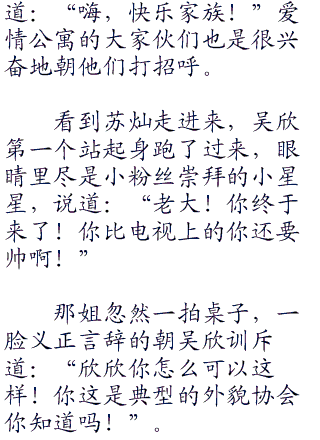 道：“嗨，快乐家族！”爱
情公寓的大家伙们也是很兴
奋地朝他们打招呼。
看到苏灿走进来，吴欣
第一个站起身跑了过来，眼
睛里尽是小粉丝崇拜的小星
星，说道：“老大！你终于
来了！你比电视上的你还要
帅啊！”
那姐忽然一拍桌子，一
脸义正言辞的朝吴欣训斥
道：“欣欣你怎么可以这
样！你这是典型的外貌协会
你知道吗！”。